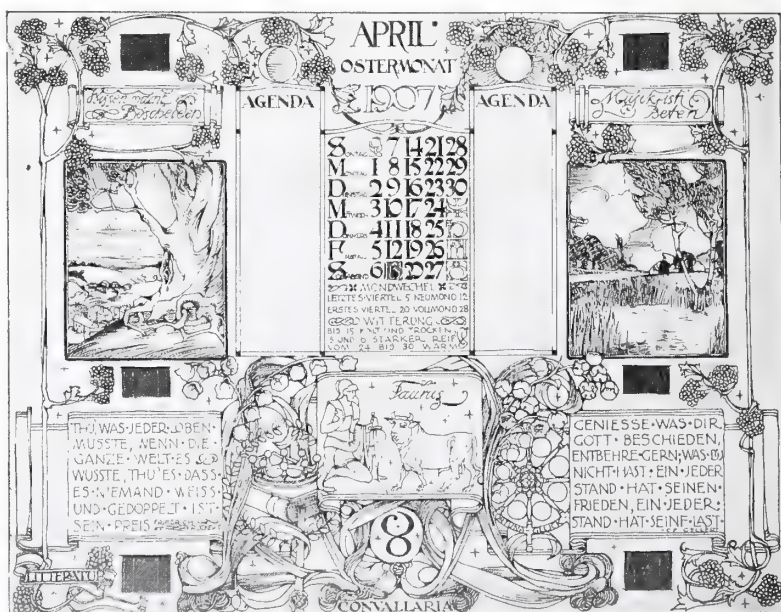 APRIL
OSTERMONAT
1907
AGENDA
AGENDA
Musik ist
Beten
S 7 14 21 28
M 1 8 15 22 29
D 2 9 16 23 30
M 3 10 17 24
D 4 11 18 25
F 5 12 19 26
S 6 20 27
MONDWECHEL
LETZTES·VIERTEL 5 NEUMOND 12
ERSTES VIERTEL 20 VOLLMOND 28
WITTERUNG
BIS 15 KALT UND TROCKEN,
5 UND 6 STARKER REIF,
VOM 24 BIS 30 WARM
THU, WAS JEDER LOBEN
MÜSSTE, WENN DIE
GANZE WELT ES
WÜSSTE, THU' ES DASS
ES NIEMAND WEISS
UND GEDOPPELT IST
SEIN PREIS
Faunus
GENIESSE·WAS·DIR
GOTT BESCHIEDEN,
ENTBEHRE·GERN; WAS·DU
NICHT·HAST·EIN JEDER
STAND HAT SEINEN
FRIEDEN, EIN JEDER
STAND·HAT·SEINE LAST
8
LITTERATU
CONVALLARIA